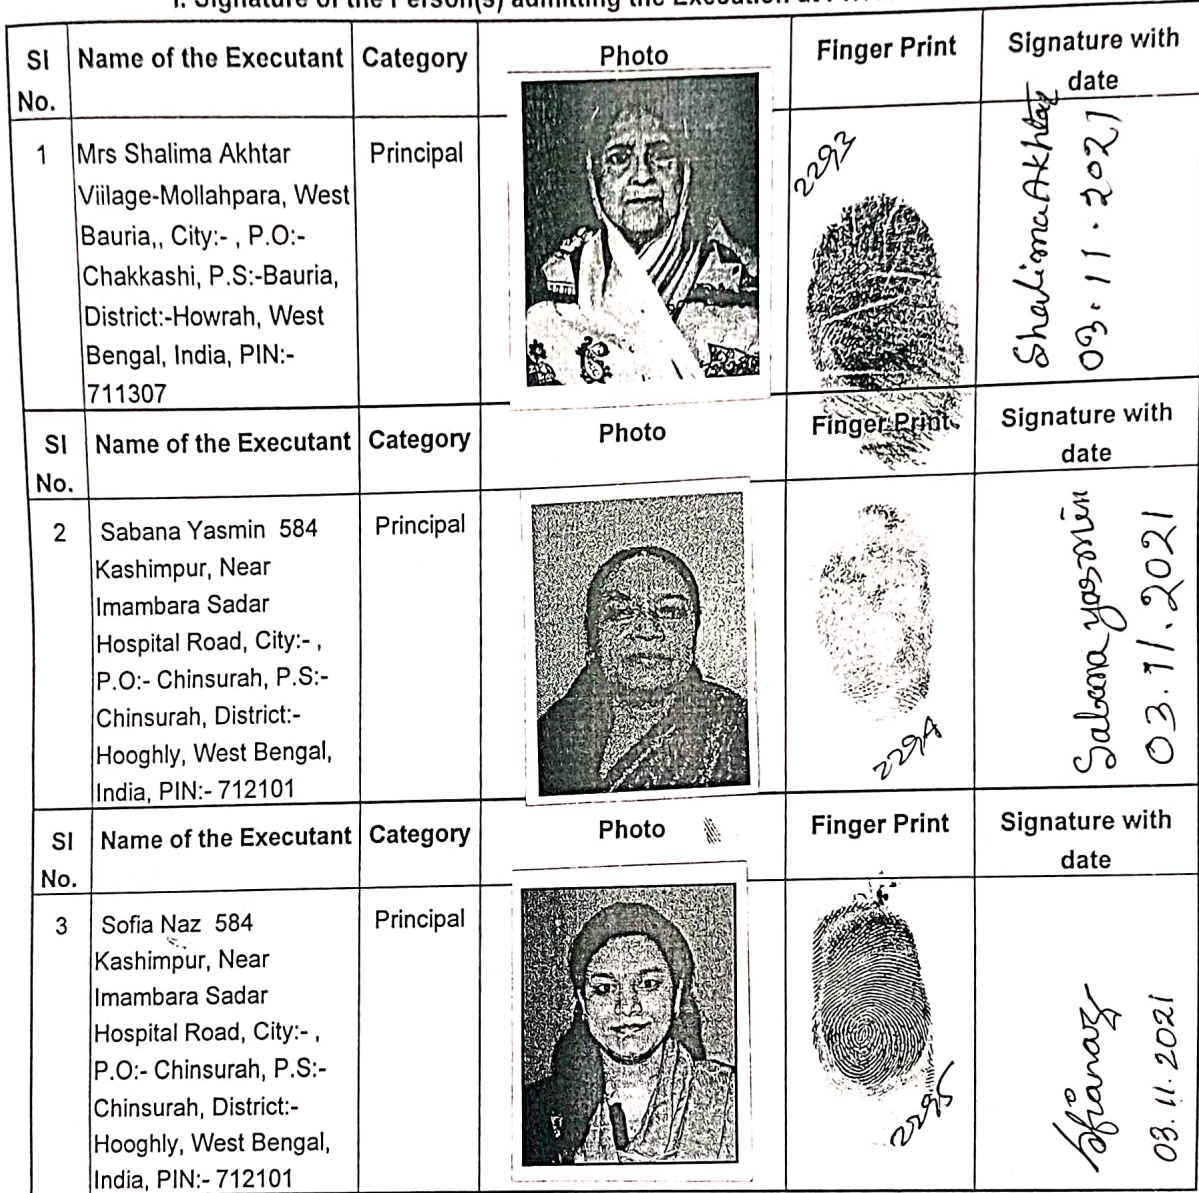 I. Signature of the Person(s) admitting the Execution at
Sl No. Name of the Executant Category Photo Finger Print Signature with date
1 Mrs Shalima Akhtar Principal
Viilage-Mollahpara, West
Bauria,, City:- , P.O:-
Chakkashi, P.S:-Bauria,
District:-Howrah, West
Bengal, India, PIN:-
711307
2293
Shalima Akhtar
03.11.2021
Sl No. Name of the Executant Category Photo Finger Print Signature with date
2 Sabana Yasmin 584 Principal
Kashimpur, Near
Imambara Sadar
Hospital Road, City:- ,
P.O:- Chinsurah, P.S:-
Chinsurah, District:-
Hooghly, West Bengal,
India, PIN:- 712101
2294
Sabana yasmin
03.11.2021
Sl No. Name of the Executant Category Photo Finger Print Signature with date
3 Sofia Naz 584 Principal
Kashimpur, Near
Imambara Sadar
Hospital Road, City:- ,
P.O:- Chinsurah, P.S:-
Chinsurah, District:-
Hooghly, West Bengal,
India, PIN:- 712101
2295
03.11.2021